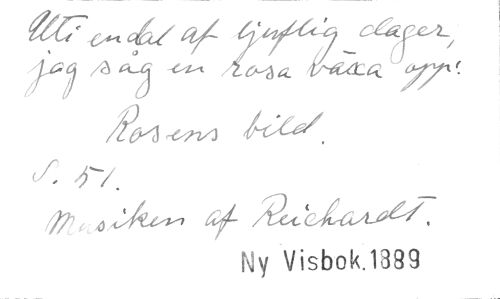 Uti en dal af ljuflig dager,
jag såg en rosa växa opp!
Rosens bild.
S. 51.
Musiken af Reichardt.
Ny Visbok.1889